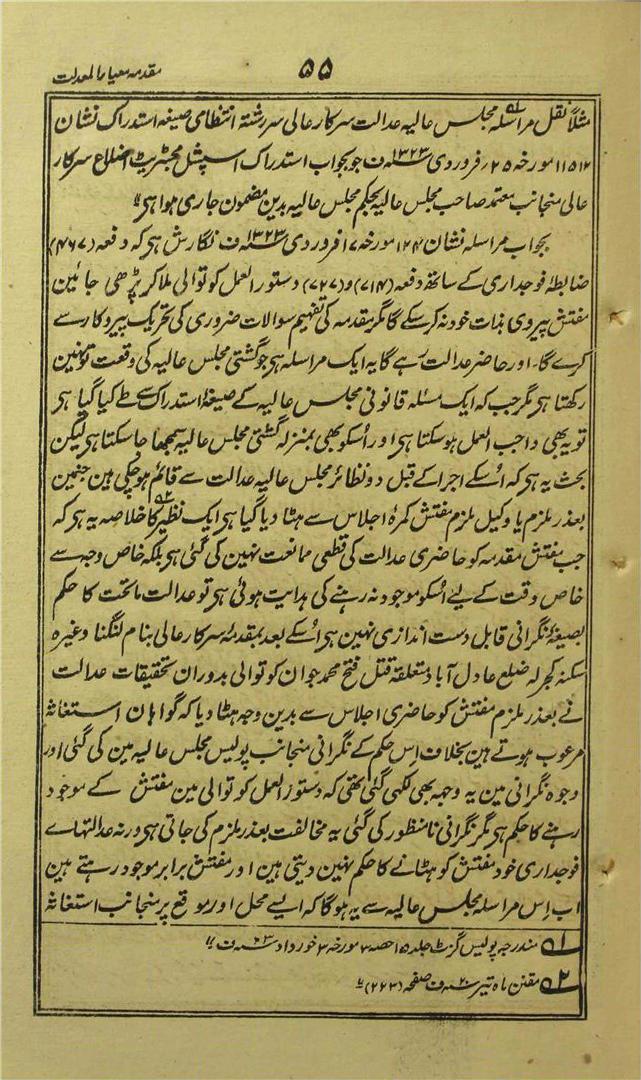 ۵۵
مقدمہ معیار المعدلت
مثلاً نقل مراسلہ مجلس عالیہ عدالت سرکار عالی سررشتۂ انتظامی صیغہ استدراک نشان
۱۱۵۱۲ مورخہ ۲۵ ر فروردی ۱۳۲۳ سنہ ف جو بجواب استدراک اسپیشل مجسٹریٹ اضلاع سرکار
عالی منجانب معتمد صاحب مجلس عالیہ بحکم مجلس عالیہ بدین مضمون جاری ہوا ہی
بجواب مراسلہ نشان ۱۲۴ مورخہ ۱۷ فروردی ۱۳۲۳ سنہ ف نگارش ہی کہ دفعہ (۴۶۷)
ضابطۂ فوجداری کے ساتھ دفعہ (۷۱۴) و (۷۲۷) دستور العمل کوتوالی ملا کر پڑھی جائین
مفتش پیروی بذات خود نہ کر سکے گا مگر مقدمہ کی تفہیم سوالات ضروری کی تحریک پیروکار سے
کرے گا۔ اور حاضر عدالت رہے گا یہ ایک مراسلہ ہی جو گشتی مجلس عالیہ کی وقعت تو نہین
رکھتا ہی مگر جب کہ ایک مسئلہ قانونی مجلس عالیہ کے صیغۂ استدراک سے طے کیا گیا ہی
تو یہ بھی واجب العمل ہو سکتا ہی اور اُسکو بھی بمنزلہ گشتی مجلس عالیہ سمجھا جا سکتا ہی لیکن
بحث یہ ہی کہ اُسکے اجرا کے قبل دو نظائر مجلس عالیہ عدالت سے قائم ہو چکی ہین جنہین
بعذر ملزم یا وکیل ملزم مفتش کمرۂ اجلاس سے ہٹا دیا گیا ہی ایک نظیر کا خلاصہ یہ ہی کہ
جب مفتش مقدمہ کو حاضری عدالت کی قطعی ممانعت نہین کی گئی ہی بلکہ خاص وجہ سے
خاص وقت کے لیے اُسکو موجود نہ رہنے کی ہدایت ہوئی ہی تو عدالت ماتحت کا حکم
بصیغۂ نگرانی قابل دست اندازی نہین ہی اُسکے بعد بمقدمۂ سرکار عالی بنام لنگنا وغیرہ
سکنہ کجرلہ ضلع عادل آباد متعلقۂ قتل فتح محمد جوان کوتوالی بدوران تحقیقات عدالت
نے بعذر ملزم مفتش کو حاضری اجلاس سے بدین وجہ ہٹا دیا کہ گواہان استغاثہ
مرعوب ہوتے ہین بخلاف اِس حکم کے نگرانی منجانب پولیس مجلس عالیہ مین کی گئی اور
وجوہ نگرانی مین یہ وجہ بھی لکھی گئی تھی کہ دستور العمل کوتوالی مین مفتش کے موجود
رہنے کا حکم ہی مگر نگرانی نامنظور کی گئی یہ مخالفت بعذر ملزم کی جاتی ہی ورنہ عدالتہاے
فوجداری خود مفتش کو ہٹانے کا حکم نہین دیتی ہین اور مفتش برابر موجود رہتے ہین
اب اِس مراسلہ مجلس عالیہ سے یہ ہوگا کہ ایسے محل اور موقع پر منجانب استغاثہ
۱ مندرجہ پولیس گزٹ جلد ۱۵ حصہ ۳ مورخہ ۳ خورداد ۲۳ سنہ ف
۲ مقنن ماہ تیر ۲۰ سنہ ف صفحہ (۲۶۳)